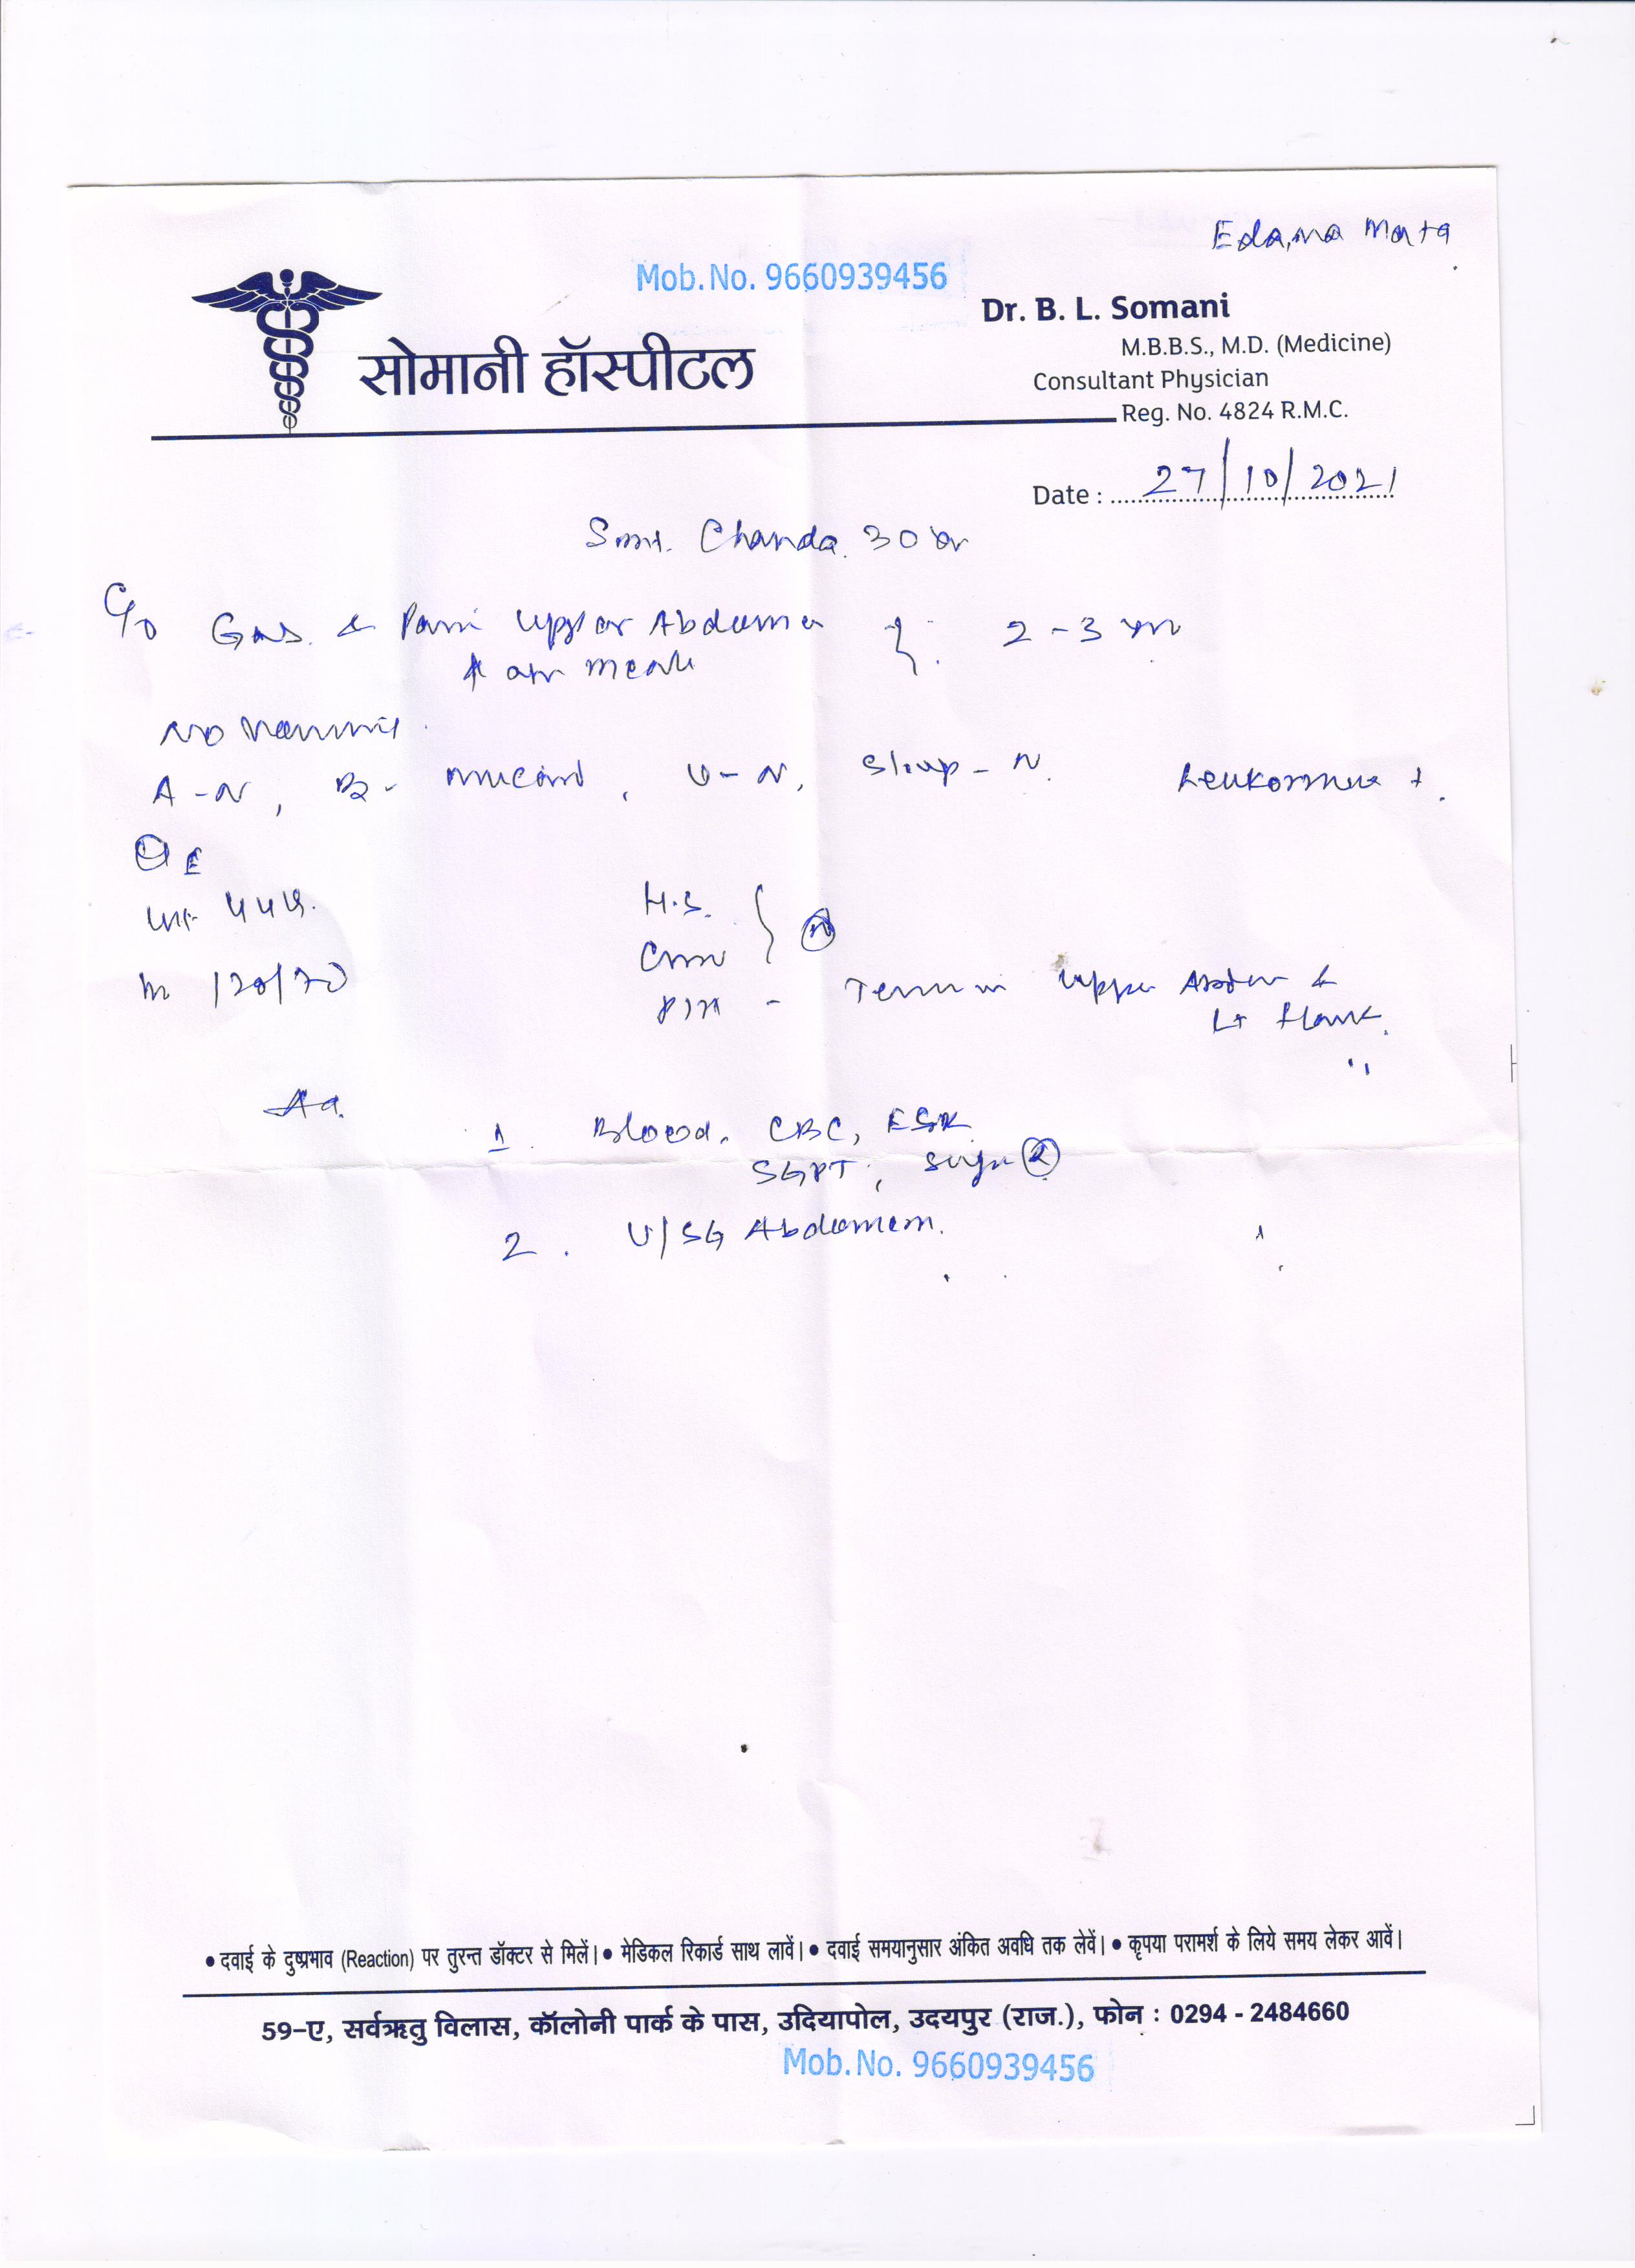 Edana Mata
Mob. No. 9660939456
Dr. B. L. Somani
M.B.B.S., M.D. (Medicine)
सोमानी हॉस्पीटल
Consultant Physician
Reg. No. 4824 R.M.C.
Date : 27/10/2021
Smt. Chanda 30
C/o Gas & Pain Upper Abdomen } 2-3
meals
No
A-N, B- mucoid, U-N, Sleep-N. +
O E
Wt 44
120/70
H.S.
} N
P/A - Upper &
Lt Flank
Ad.
1. Blood. CBC, ESR
SGPT, Sugar R
2. U/SG Abdomen.
• दवाई के दुष्प्रभाव (Reaction) पर तुरन्त डॉक्टर से मिलें। • मेडिकल रिकार्ड साथ लावें। • दवाई समयानुसार अंकित अवधि तक लेवें। • कृपया परामर्श के लिये समय लेकर आवें।
59-ए, सर्वऋतु विलास, कॉलोनी पार्क के पास, उदियापोल, उदयपुर (राज.), फोन : 0294 - 2484660
Mob. No. 9660939456